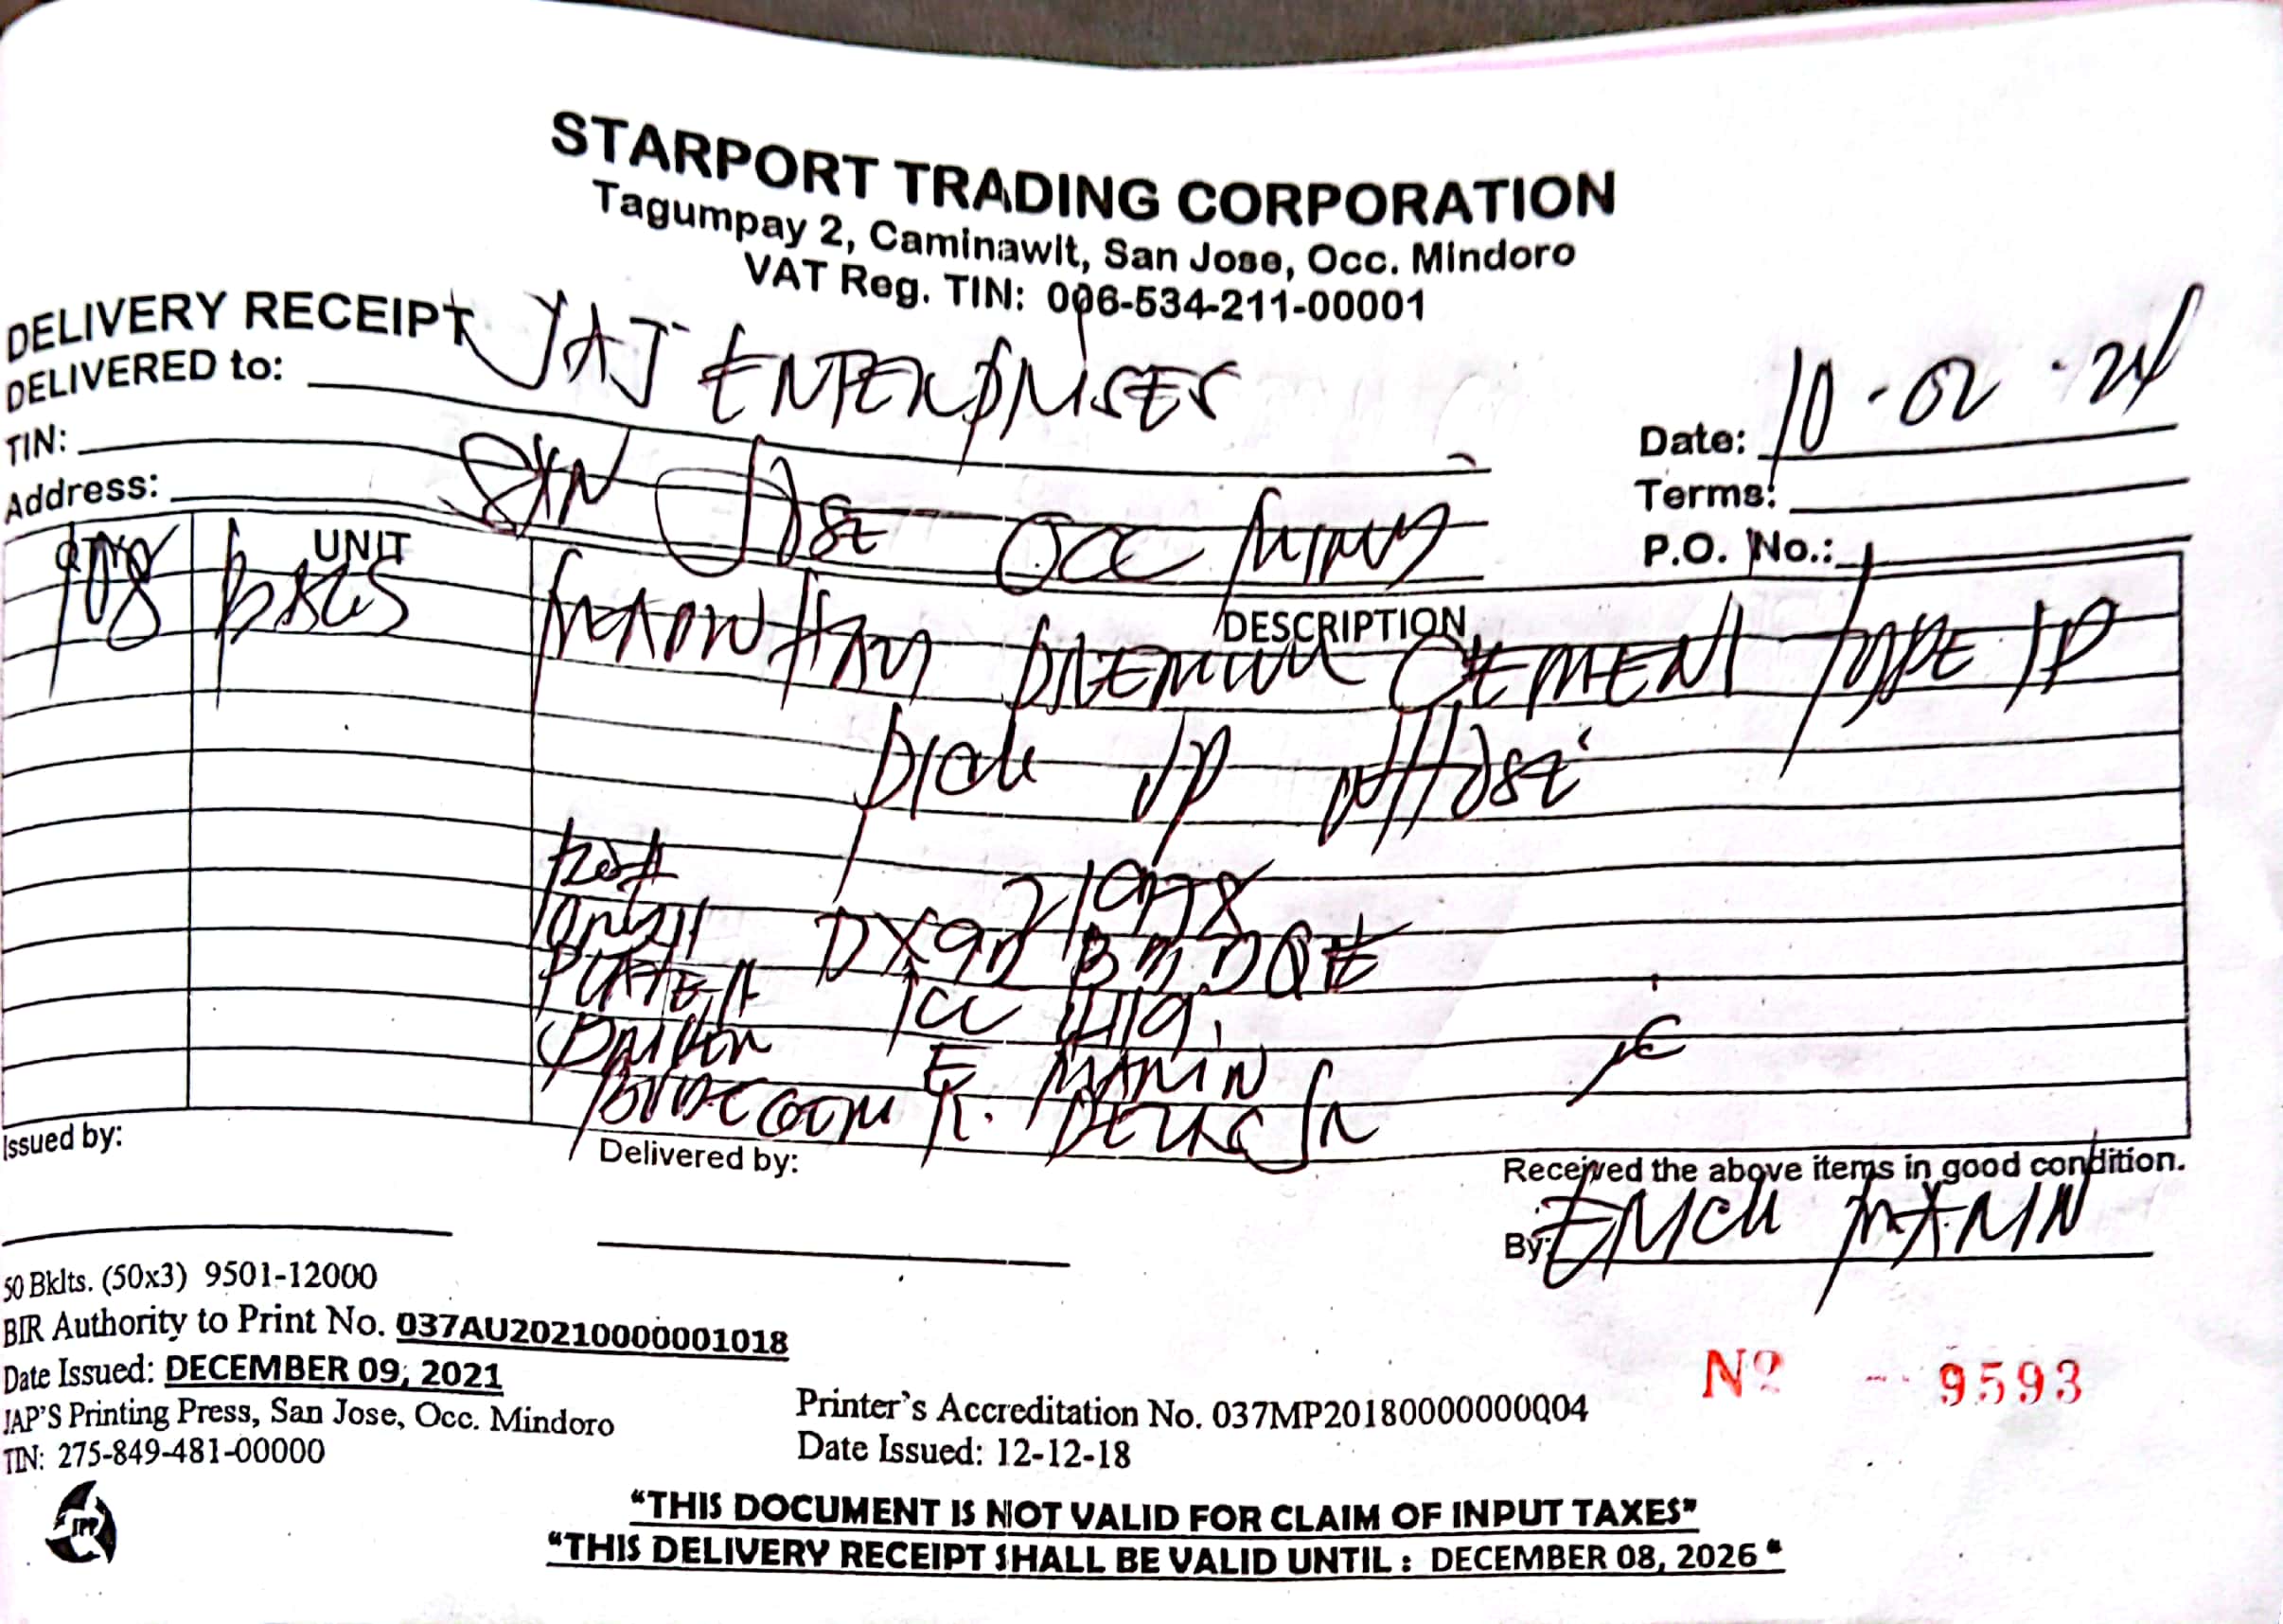 STARPORT TRADING CORPORATION
Tagumpay 2, Caminawit, San Jose, Occ. Mindoro
VAT Reg. TIN: 006-534-211-00001
DELIVERY RECEIPT
DELIVERED to: YAJ ENTERPRISES
TIN:
Address: SAN JOSE OCC MIN
Date: 10-02-24
Terms:
P.O. No.:
UNIT DESCRIPTION
108 BAGS PREMIUM CEMENT TYPE 1P
Pick up
21978
PLATE#
Driver E. MARIN
Issued by:
Delivered by:
Received the above items in good condition.
By: MARIN
50 Bklts. (50x3) 9501-12000
BIR Authority to Print No. 037AU20210000001018
Date Issued: DECEMBER 09, 2021
JAP'S Printing Press, San Jose, Occ. Mindoro
TIN: 275-849-481-00000
Printer's Accreditation No. 037MP20180000000004
Date Issued: 12-12-18
Nº 9593
JPP
"THIS DOCUMENT IS NOT VALID FOR CLAIM OF INPUT TAXES"
"THIS DELIVERY RECEIPT SHALL BE VALID UNTIL : DECEMBER 08, 2026 "